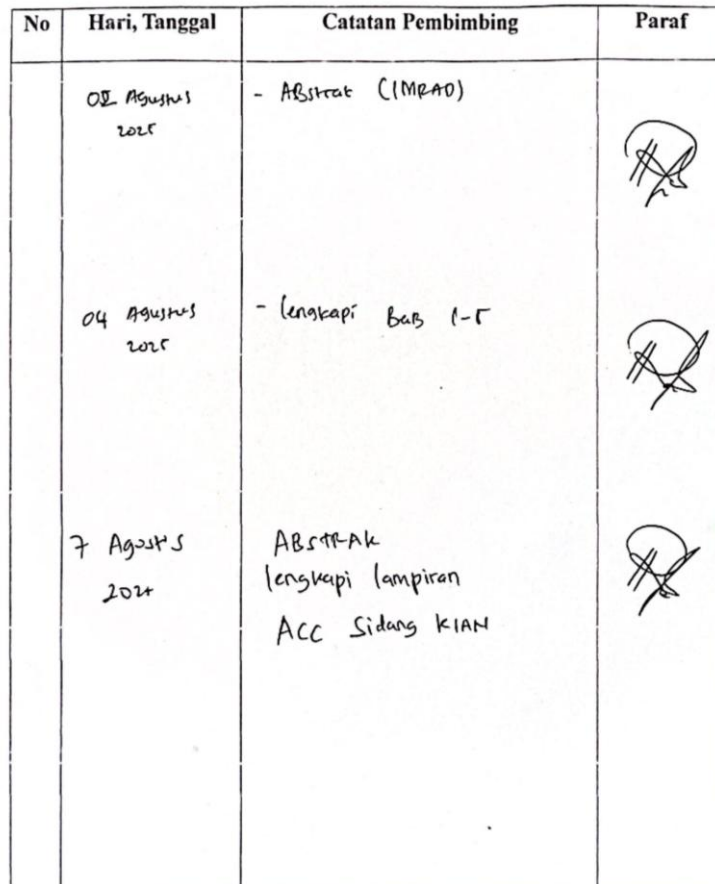 No Hari, Tanggal Catatan Pembimbing Paraf
Agustus - ABstrak (IMRAD)
2025
04 Agustus - lengkapi BaB 1-5
2025
7 Agustus ABSTRAK
lengkapi lampiran
ACC Sidang KIAN